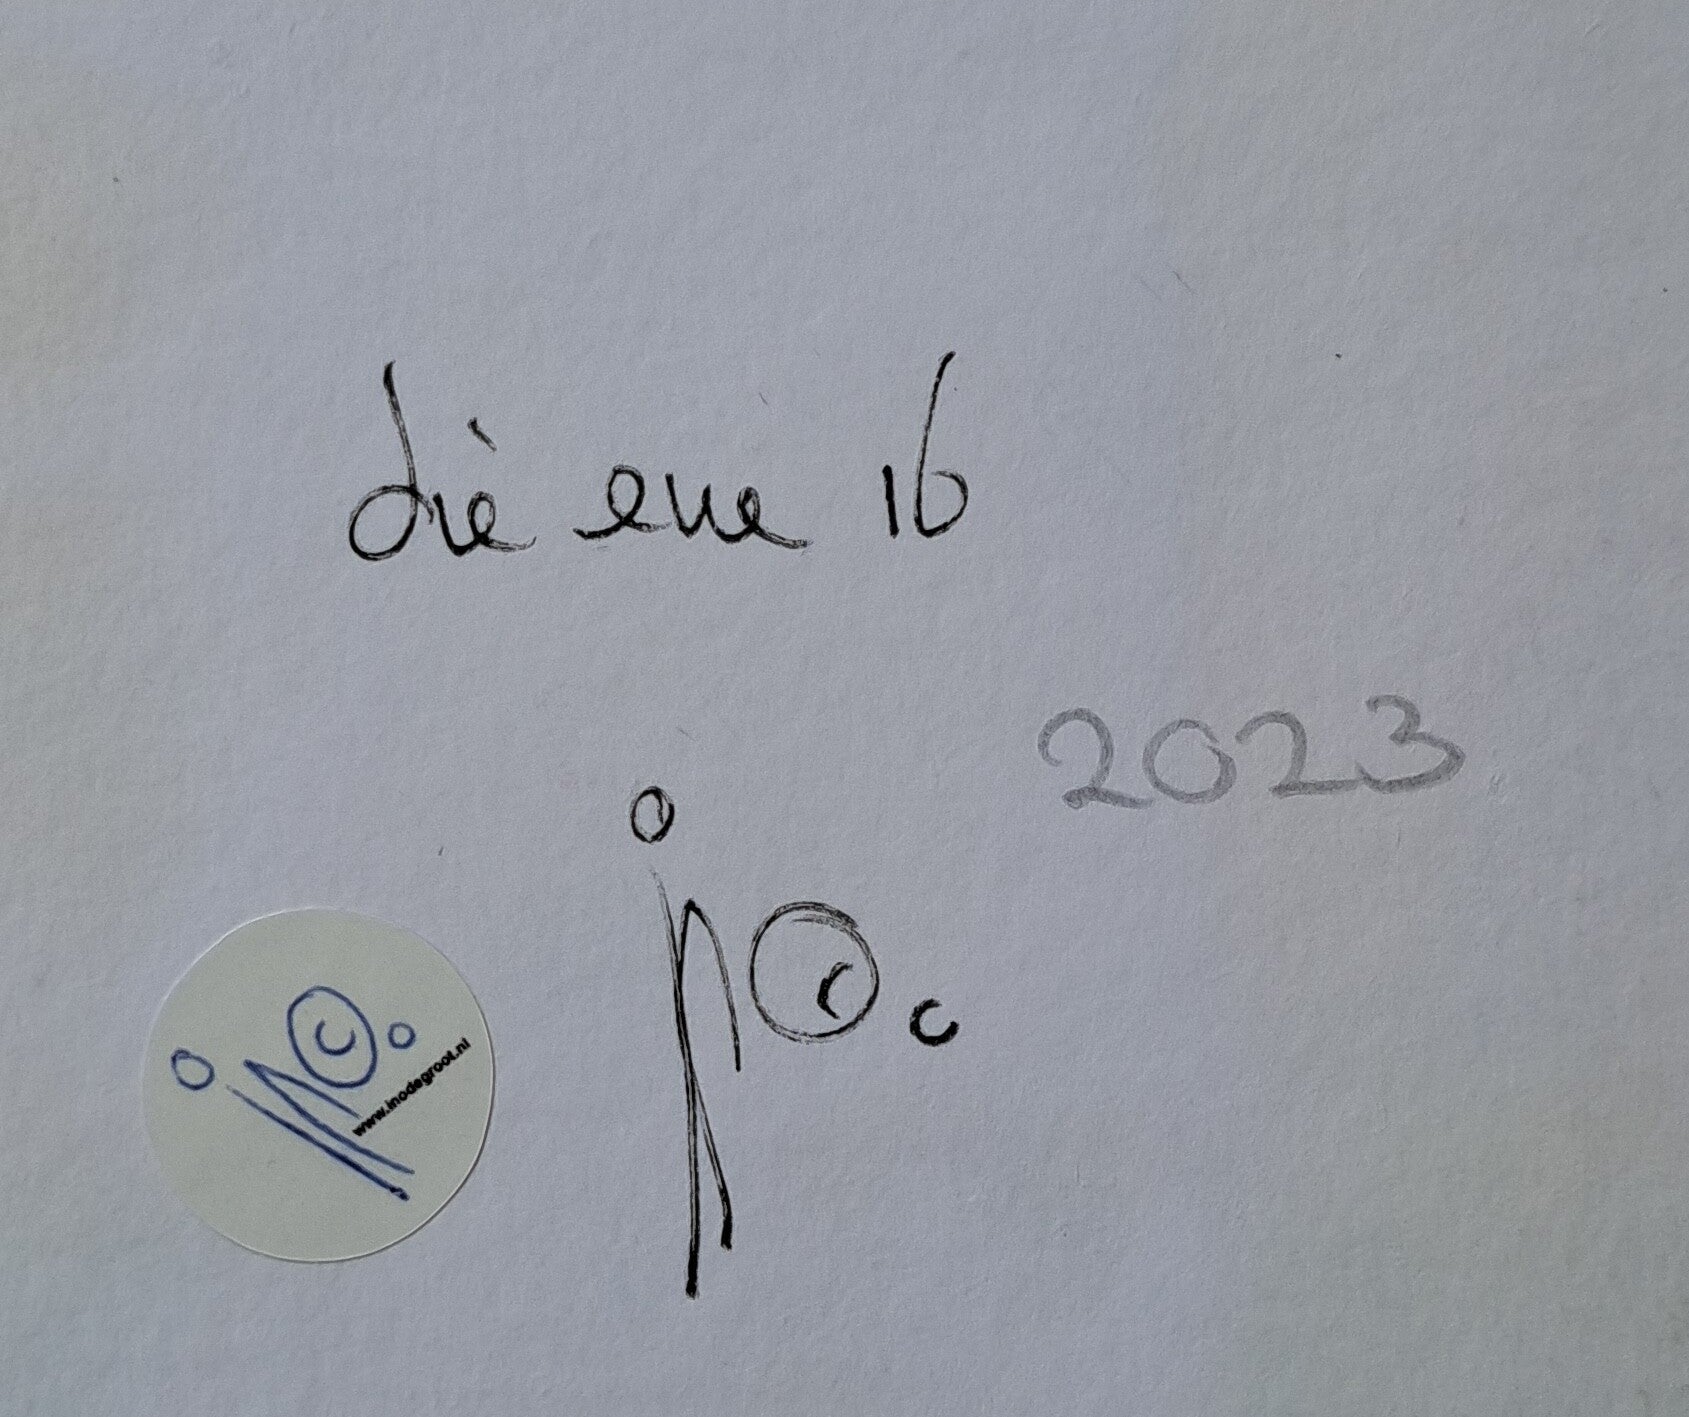 die ene 16
2023
ino
www.inodegroot.nl